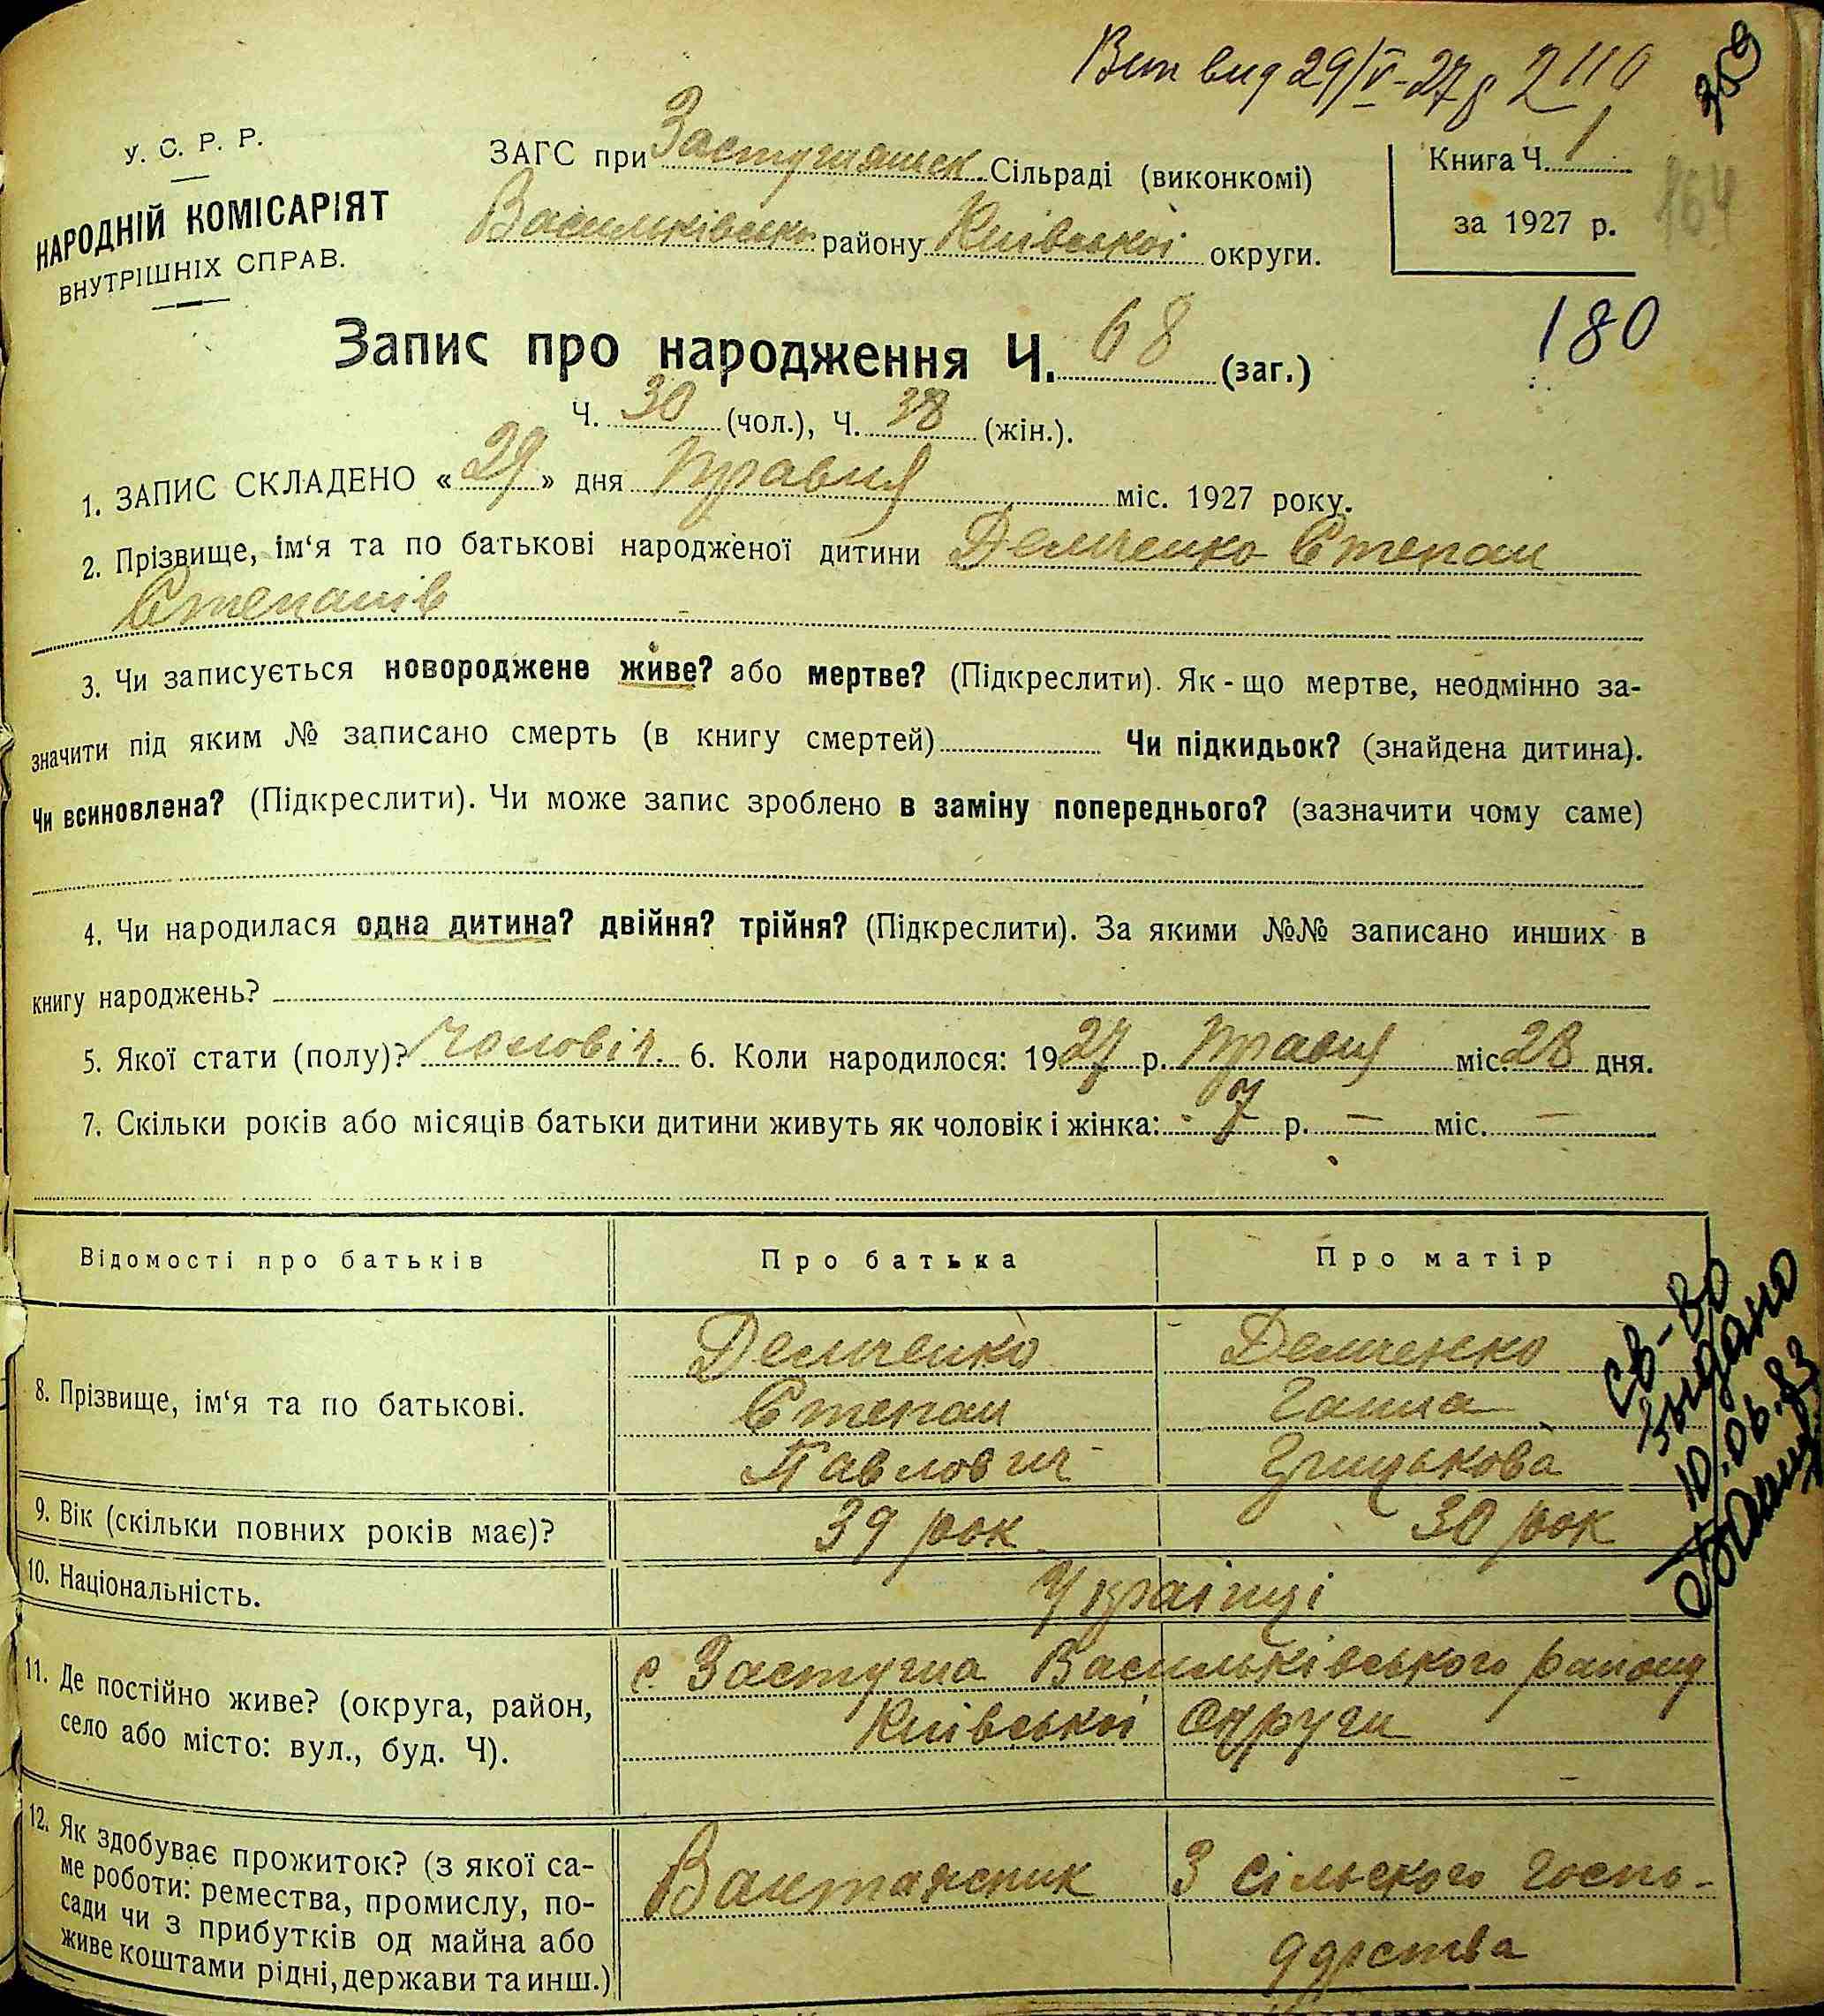 Вип вид 29/V-27 р 2110
У. С. Р. Р.
НАРОДНІЙ КОМІСАРІЯТ
ВНУТРІШНІХ СПРАВ.
ЗАГС при Застугнянськ Сільраді (виконкомі)
Васильківсько району Київської округи.
Книга Ч. 1
за 1927 р.
164
180
Запис про народження Ч. 68 (заг.)
Ч. 30 (чол.), Ч. 38 (жін.).
1. ЗАПИС СКЛАДЕНО «29» дня Травня міс. 1927 року.
2. Прізвище, ім‘я та по батькові народженої дитини Демченко Степан
Степанів
3. Чи записується новороджене живе? або мертве? (Підкреслити). Як-що мертве, неодмінно за-
значити під яким № записано смерть (в книгу смертей) Чи підкидьок? (знайдена дитина).
Чи всиновлена? (Підкреслити). Чи може запис зроблено в заміну попереднього? (зазначити чому саме)
4. Чи народилася одна дитина? двійня? трійня? (Підкреслити). За якими №№ записано инших в
книгу народжень?
5. Якої стати (полу)? Чоловіч. 6. Коли народилося: 1927 р. Травня міс. 28 дня.
7. Скільки років або місяців батьки дитини живуть як чоловік і жінка: 7 р. — міс. —
Відомості про батьків Про батька Про матір
8. Прізвище, ім‘я та по батькові.
Демченко Демченко
Степан Ганна
Павлович Грицькова
9. Вік (скільки повних років має)? 39 рок 30 рок
10. Національність. Українці
11. Де постійно живе? (округа, район,
село або місто: вул., буд. Ч).
с. Застугна Васильківського району
Київської округи
12. Як здобуває прожиток? (з якої са-
ме роботи: ремества, промислу, по-
сади чи з прибутків од майна або
живе коштами рідні, держави та инш.)
Вантажник З сільского госпо-
дарства
св-во
видано
10.06.83